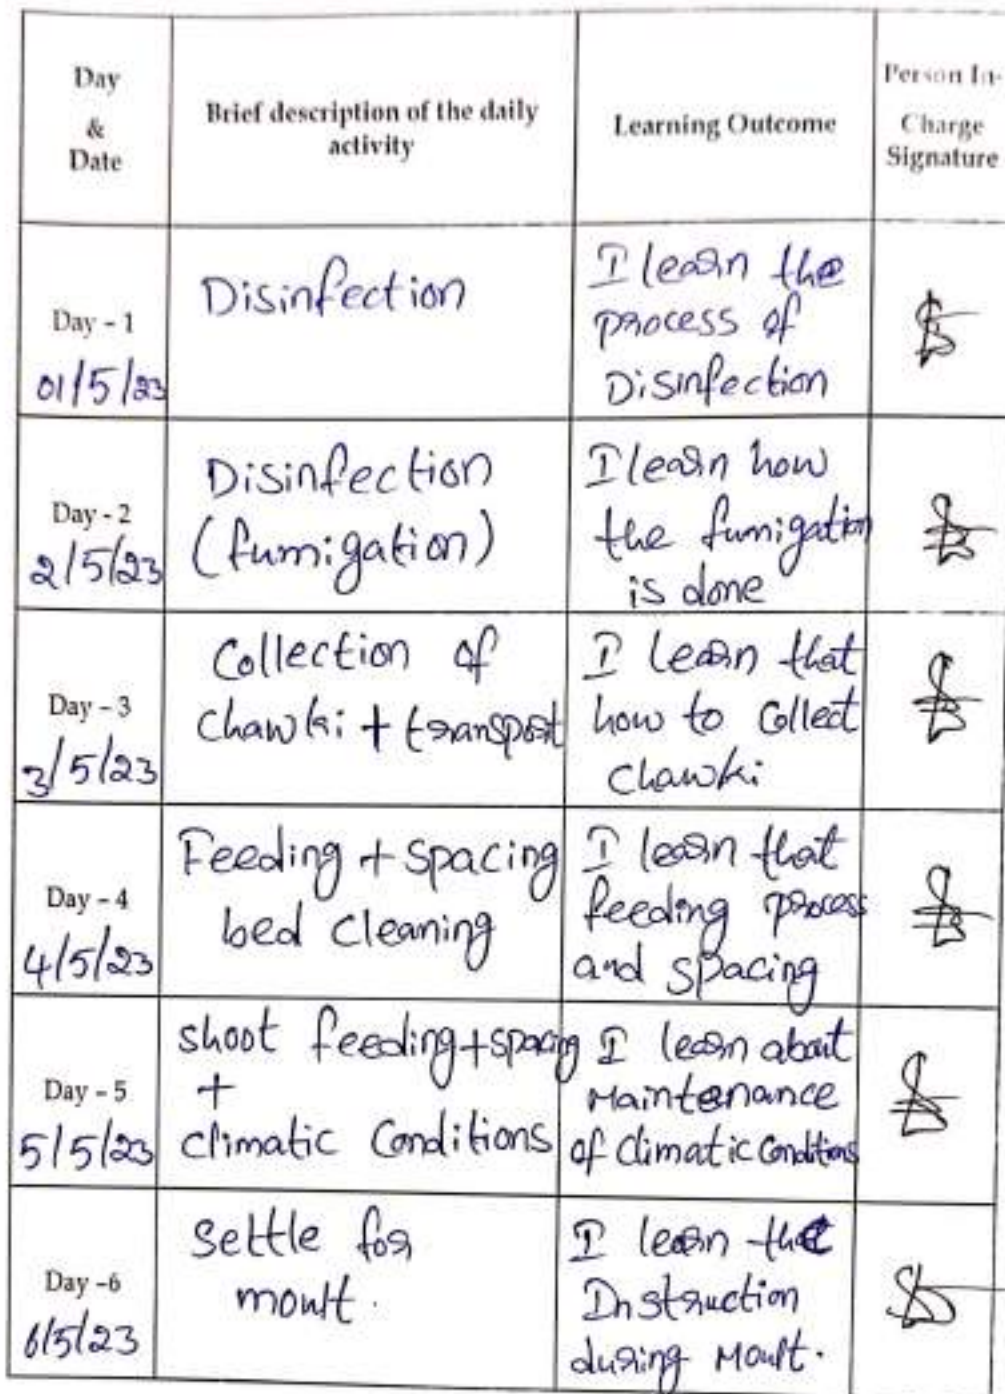 Day
&
Date
Brief description of the daily
activity
Learning Outcome
Person In-
Charge
Signature
Day - 1
01/5/23
Disinfection
I learn the
process of
Disinfection
Day - 2
2/5/23
Disinfection
(fumigation)
I learn how
the fumigation
is done
Day - 3
3/5/23
Collection of
Chawki + transport
I learn that
how to collect
Chawki
Day - 4
4/5/23
Feeding + spacing
bed cleaning
I learn that
feeding process
and spacing
Day - 5
5/5/23
shoot feeding + spacing
+
climatic Conditions
I learn about
Maintenance
of climatic Conditions
Day -6
6/5/23
Settle for
moult.
I learn the
Instruction
during Moult.